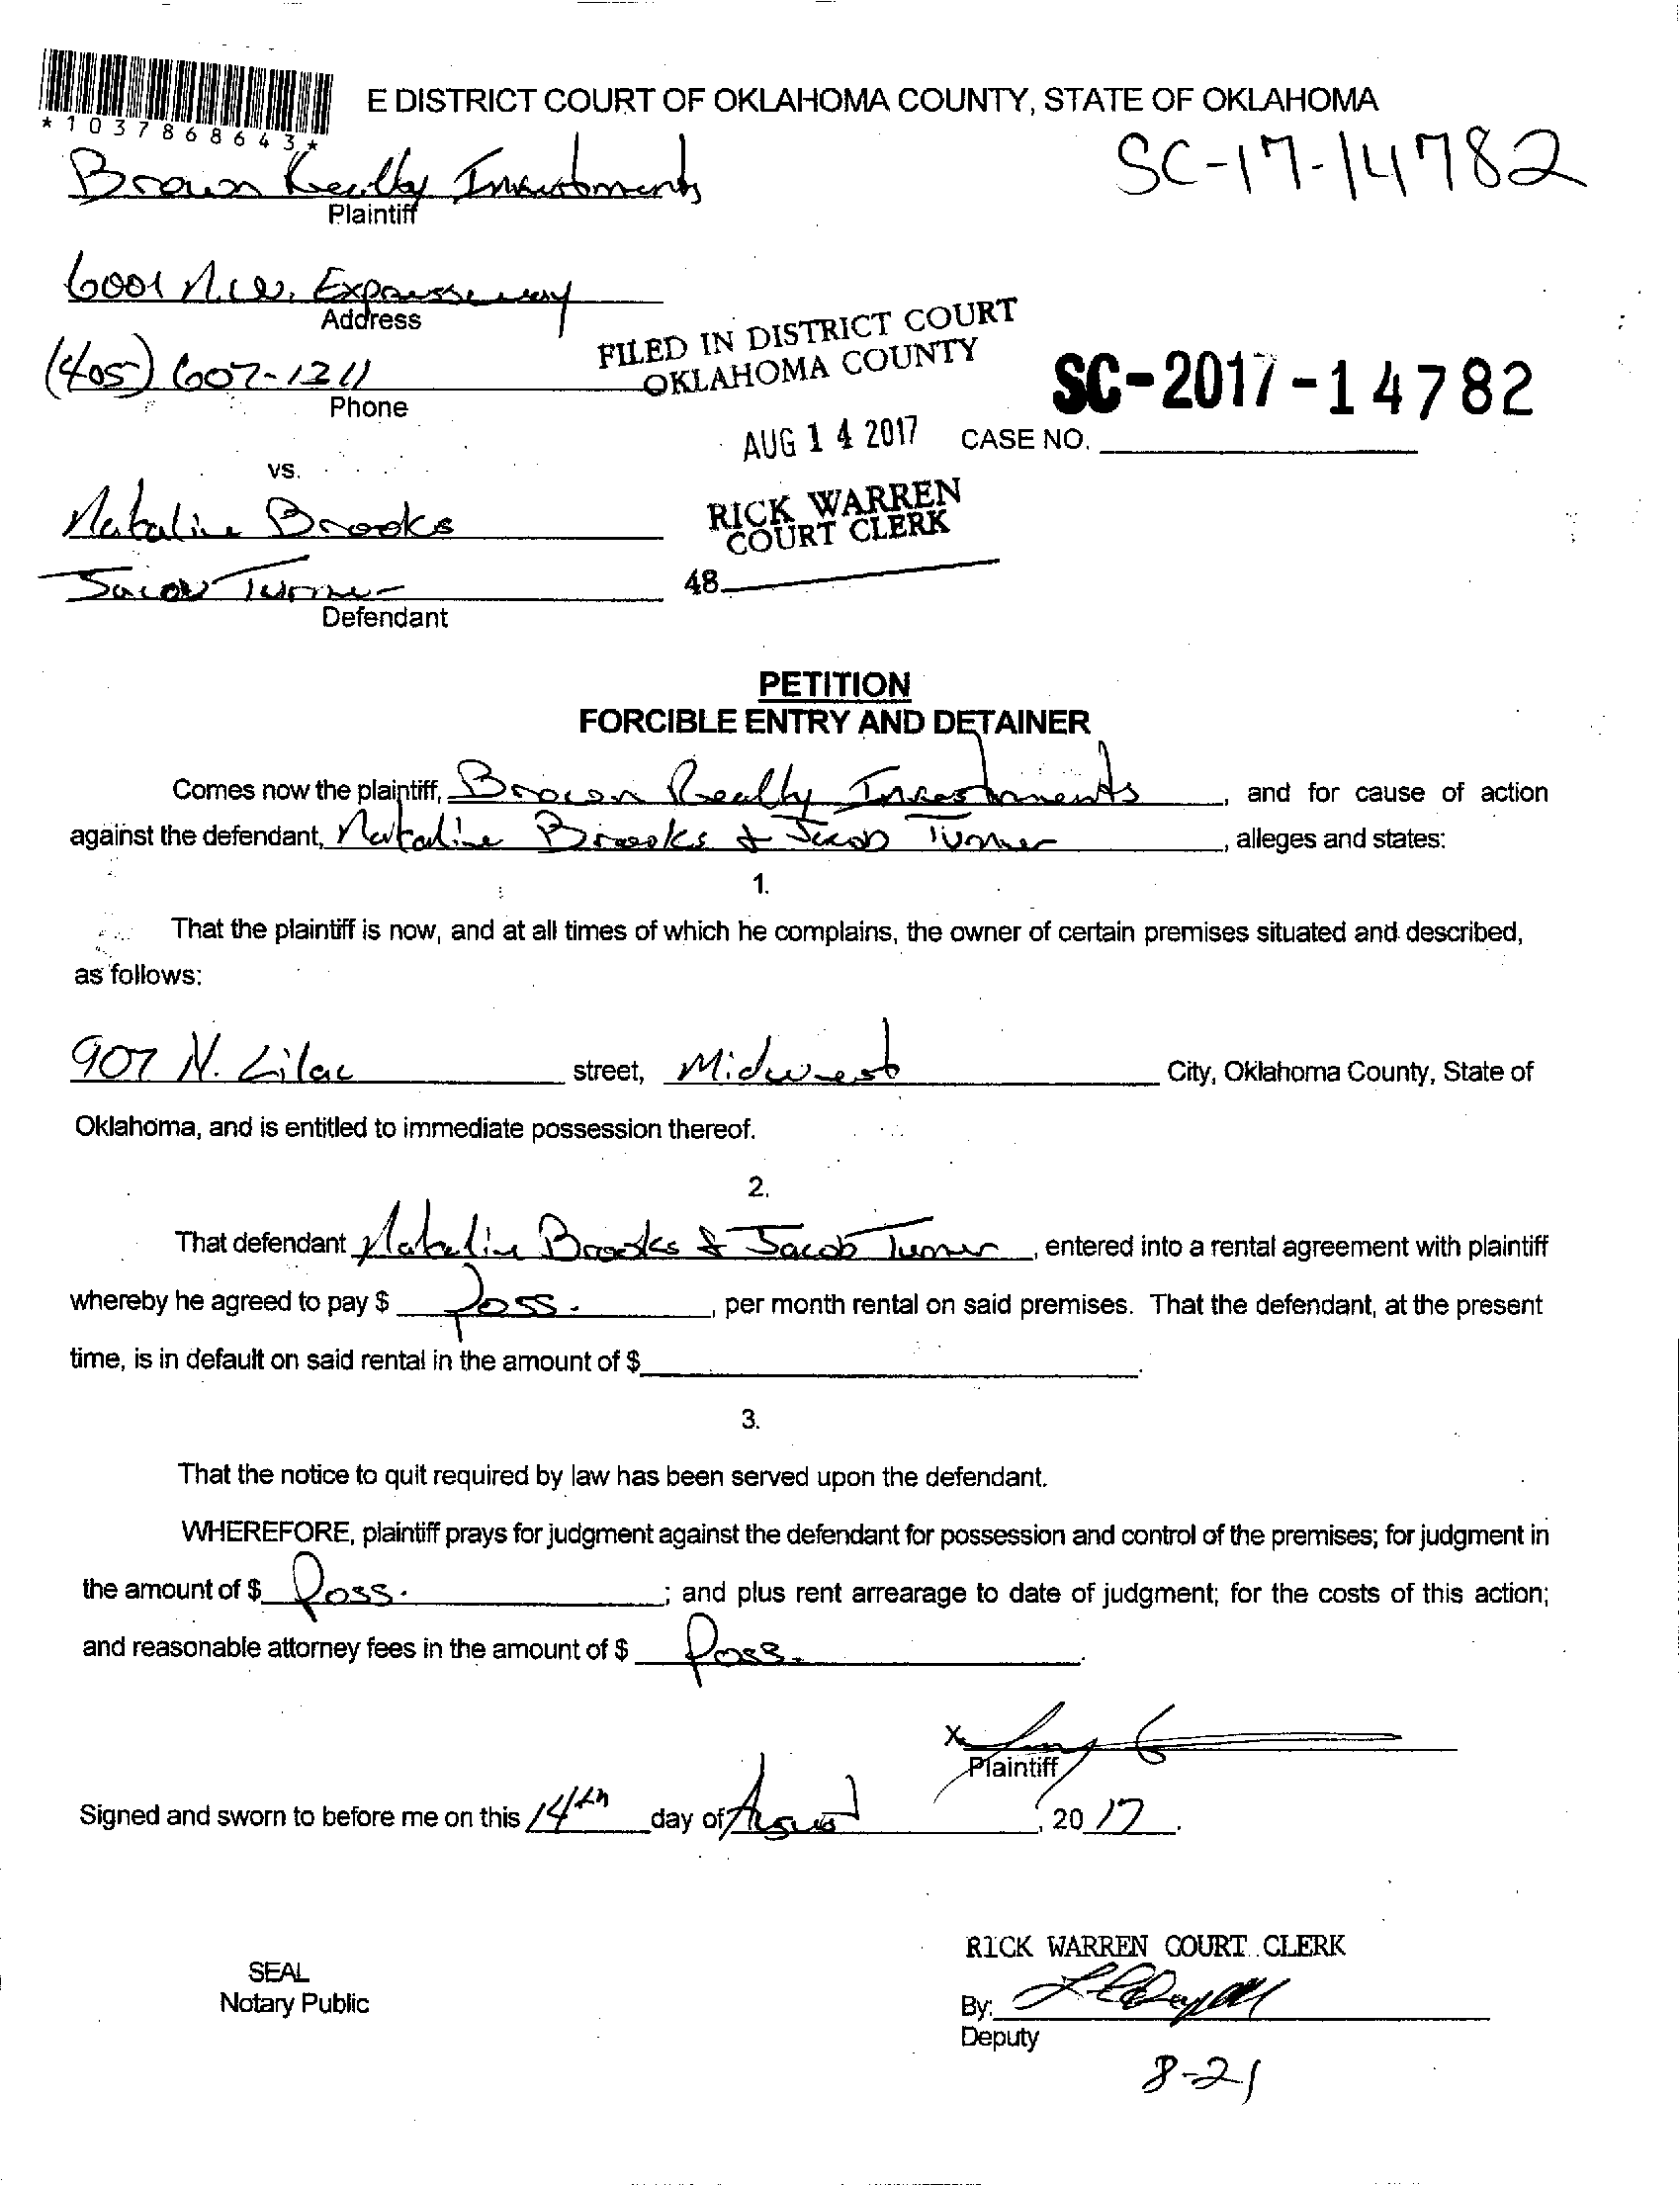 E DISTRICT COURT OF OKLAHOMA COUNTY, STATE OF OKLAHOMA
*1037868643*
SC-17-14782
Brown Realty Investments
Plaintiff
6001 N.W. Expressway
Address
(405) 607-1211
Phone
FILED IN DISTRICT COURT
OKLAHOMA COUNTY
SC-2017-14782
AUG 14 2017
CASE NO.
vs.
RICK WARREN
COURT CLERK
Natalie Brooks
48
Jacob Turner
Defendant
PETITION
FORCIBLE ENTRY AND DETAINER
Comes now the plaintiff, Brown Realty Investments, and for cause of action
against the defendant, Natalie Brooks & Jacob Turner, alleges and states:
1.
That the plaintiff is now, and at all times of which he complains, the owner of certain premises situated and described,
as follows:
907 N. Lilac street, Midwest City, Oklahoma County, State of
Oklahoma, and is entitled to immediate possession thereof.
2.
That defendant Natalie Brooks & Jacob Turner, entered into a rental agreement with plaintiff
whereby he agreed to pay $ Poss., per month rental on said premises. That the defendant, at the present
time, is in default on said rental in the amount of $ .
3.
That the notice to quit required by law has been served upon the defendant.
WHEREFORE, plaintiff prays for judgment against the defendant for possession and control of the premises; for judgment in
the amount of $ Poss. ; and plus rent arrearage to date of judgment; for the costs of this action;
and reasonable attorney fees in the amount of $ Poss. .
x
Plaintiff
Signed and sworn to before me on this 14th day of August, 20 17.
RICK WARREN COURT CLERK
SEAL
Notary Public
By:
Deputy
8-21